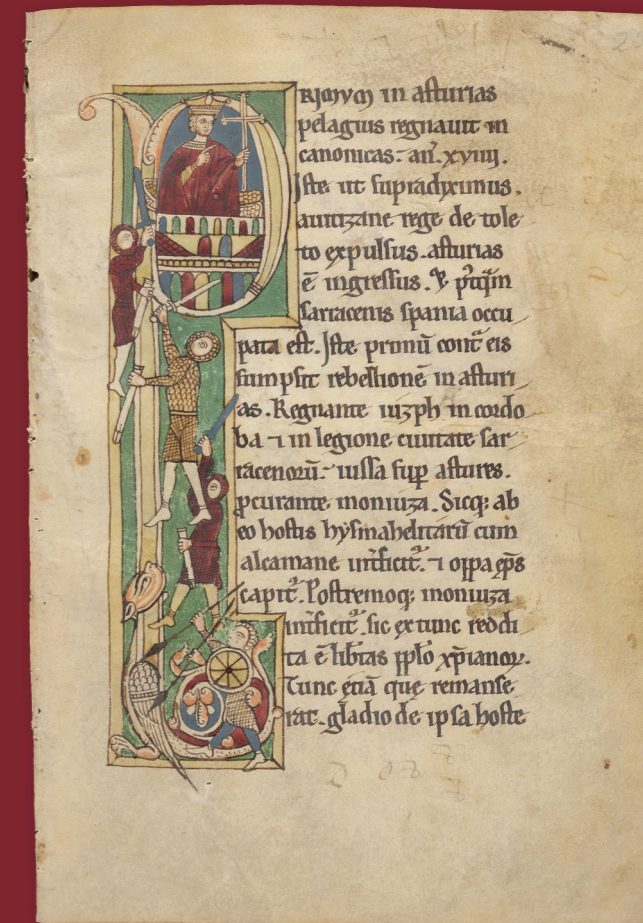 PRIMUM in asturias
pelagius regnauit in
canonicas. añ. xviiij.
Iste ut supradiximus.
a uitizane rege de tole
to expulsus. asturias
ē ingressus. & p̄tq̃m
sarracenis spania occu
pata est. Iste primū cont̃ eis
sumpsit rebellionē in asturi
as. Regnante iuzph in cordo
ba ⁊ in legione ciuitate sar
racenorū iussa sup̱ astures.
ꝓcurante moniuza. Sicq; ab
eo hostis hysmahelitarū cum
alcamane int̃ficit̃. ⁊ oppa ep̄s
capit̃. Postremoq; moniuza
int̃ficit̃. sic ex tunc reddi
ta ē lib̃tas pp̱lo xp̄ianoꝝ.
Tunc etiā que remanse
rat. gladio de ipsa hoste